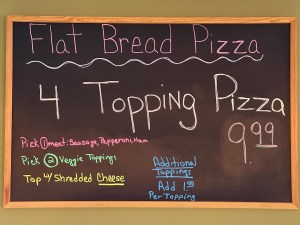 Flat Bread Pizza
4 Topping Pizza
9.99
Pick 1 meat: Sausage, Pepperoni, Ham
Pick 2 Veggie Toppings
Top w/ Shredded Cheese
Additional
Toppings
Add 1.
Per Topping